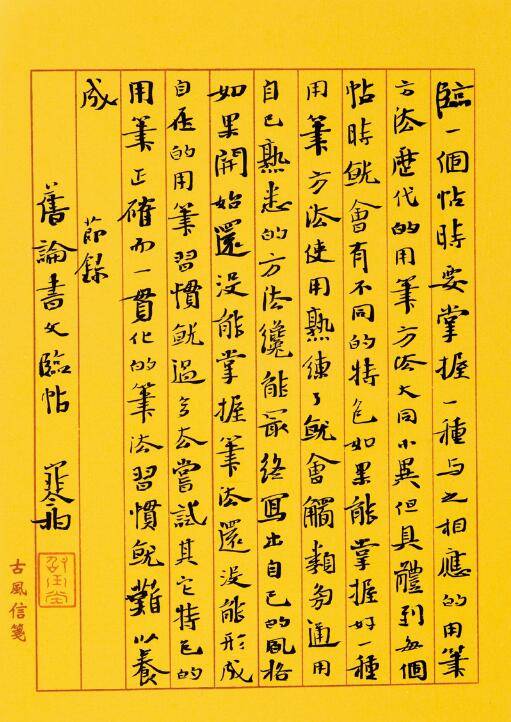 臨一個帖時要掌握一種与之相應的用筆
方法歷代的用筆方法大同小異但具體到每個
帖時就會有不同的特色如果能掌握好一種
用筆方法使用熟練了就會觸類旁通用
自己熟悉的方法纔能最終寫出自己的風格
如果開始還沒能掌握筆法還沒能形成
自在的用筆習慣就過多去嘗試其它特色的
用筆正確而一貫化的筆法習慣就難以養
成 節録
舊論書文臨帖
古風信箋